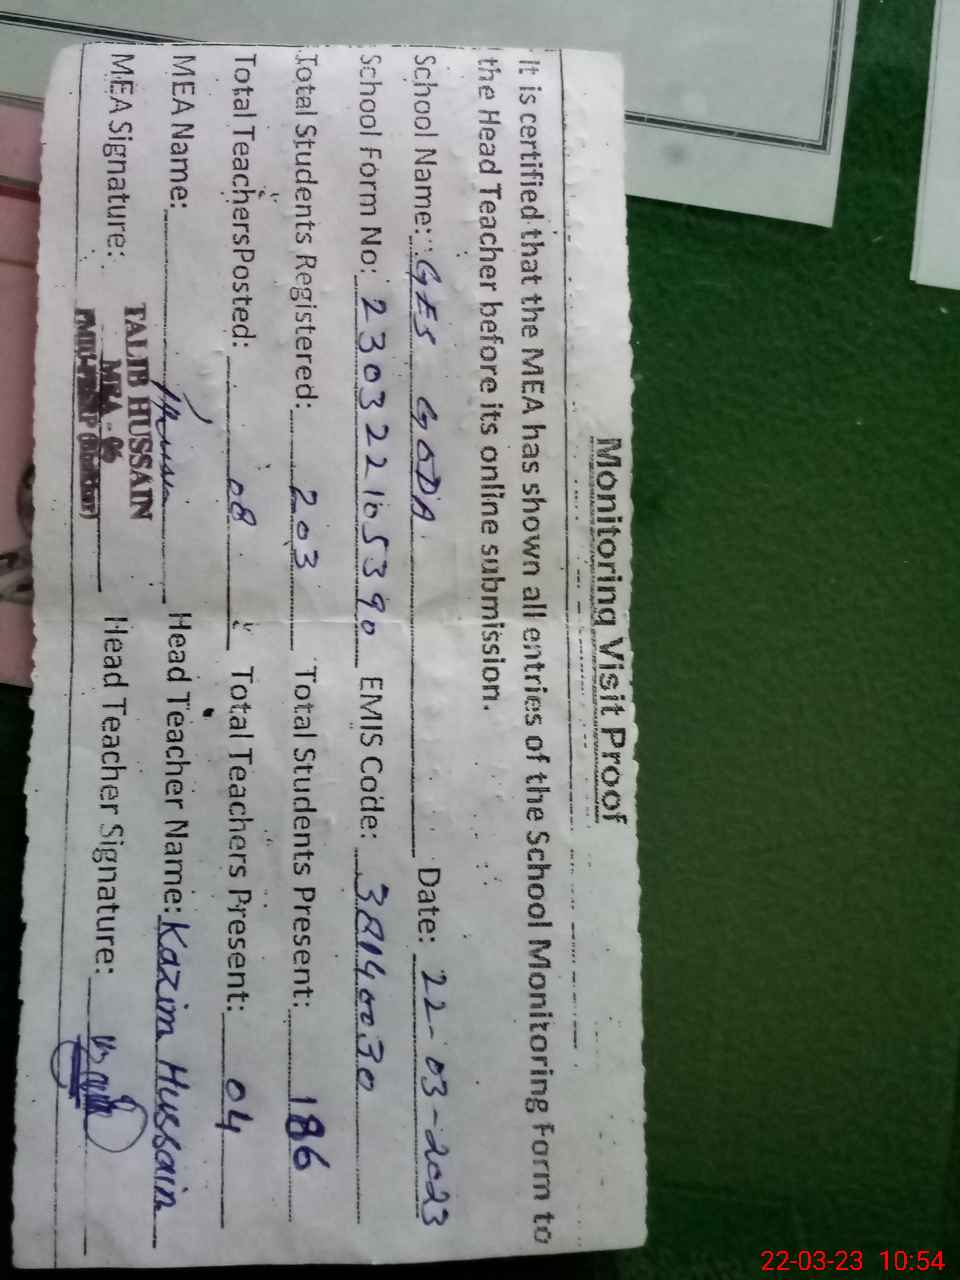 Monitoring Visit Proof
It is certified that the MEA has shown all entries of the School Monitoring Form to
the Head Teacher before its online submission.
School Name: GES GODA Date: 22-03-2023
School Form No: 230322105390 EMIS Code: 38140030
Total Students Registered: 203 Total Students Present: 186
Total TeachersPosted: 08 Total Teachers Present: 04
MEA Name: Head Teacher Name: Kazim Hussain
MEA Signature: Head Teacher Signature:
TALIB HUSSAIN
MEA - 06
22-03-23 10:54